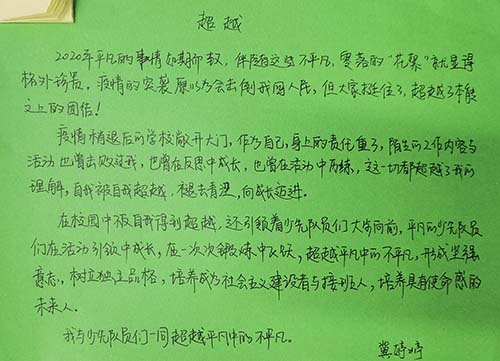 超越
2020年平凡的事情如期而致，伴随这些不平凡，零落的“花絮”就显得
格外珍贵。疫情的突袭原以为会击倒我国人民，但大家挺住了，超越了本能
之上的团结！
疫情稍退后的学校敞开大门，作为自己，身上的责任重了，陌生的工作内容与
活动也曾击败过我，也曾在反思中成长，也曾在活动中历练，这一切都超越了我的
理解，自我被自我超越，褪去青涩，向成长迈进。
在校园中被自我得到超越，还引领着少先队员们大步向前，平凡的少先队员
们在活动引领中成长，在一次次锻炼中飞跃，超越平凡中的不平凡，形成坚强
意志，树立独立品格，培养成为社会主义建设者与接班人，培养具有使命感的
未来人。
我与少先队员们一同超越平凡中的不平凡。
冀婷婷